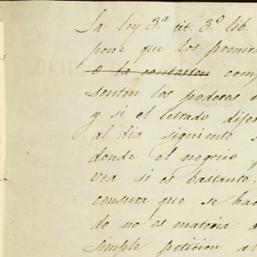 La ley 3ª tit. 3º lib.
pone que los
o la contasten com
senten los poderes
y si el letrado difer
al dia siguiente
donde el negocio
vea si es bastante,
censura que se ha
do no es materia
simple peticion al